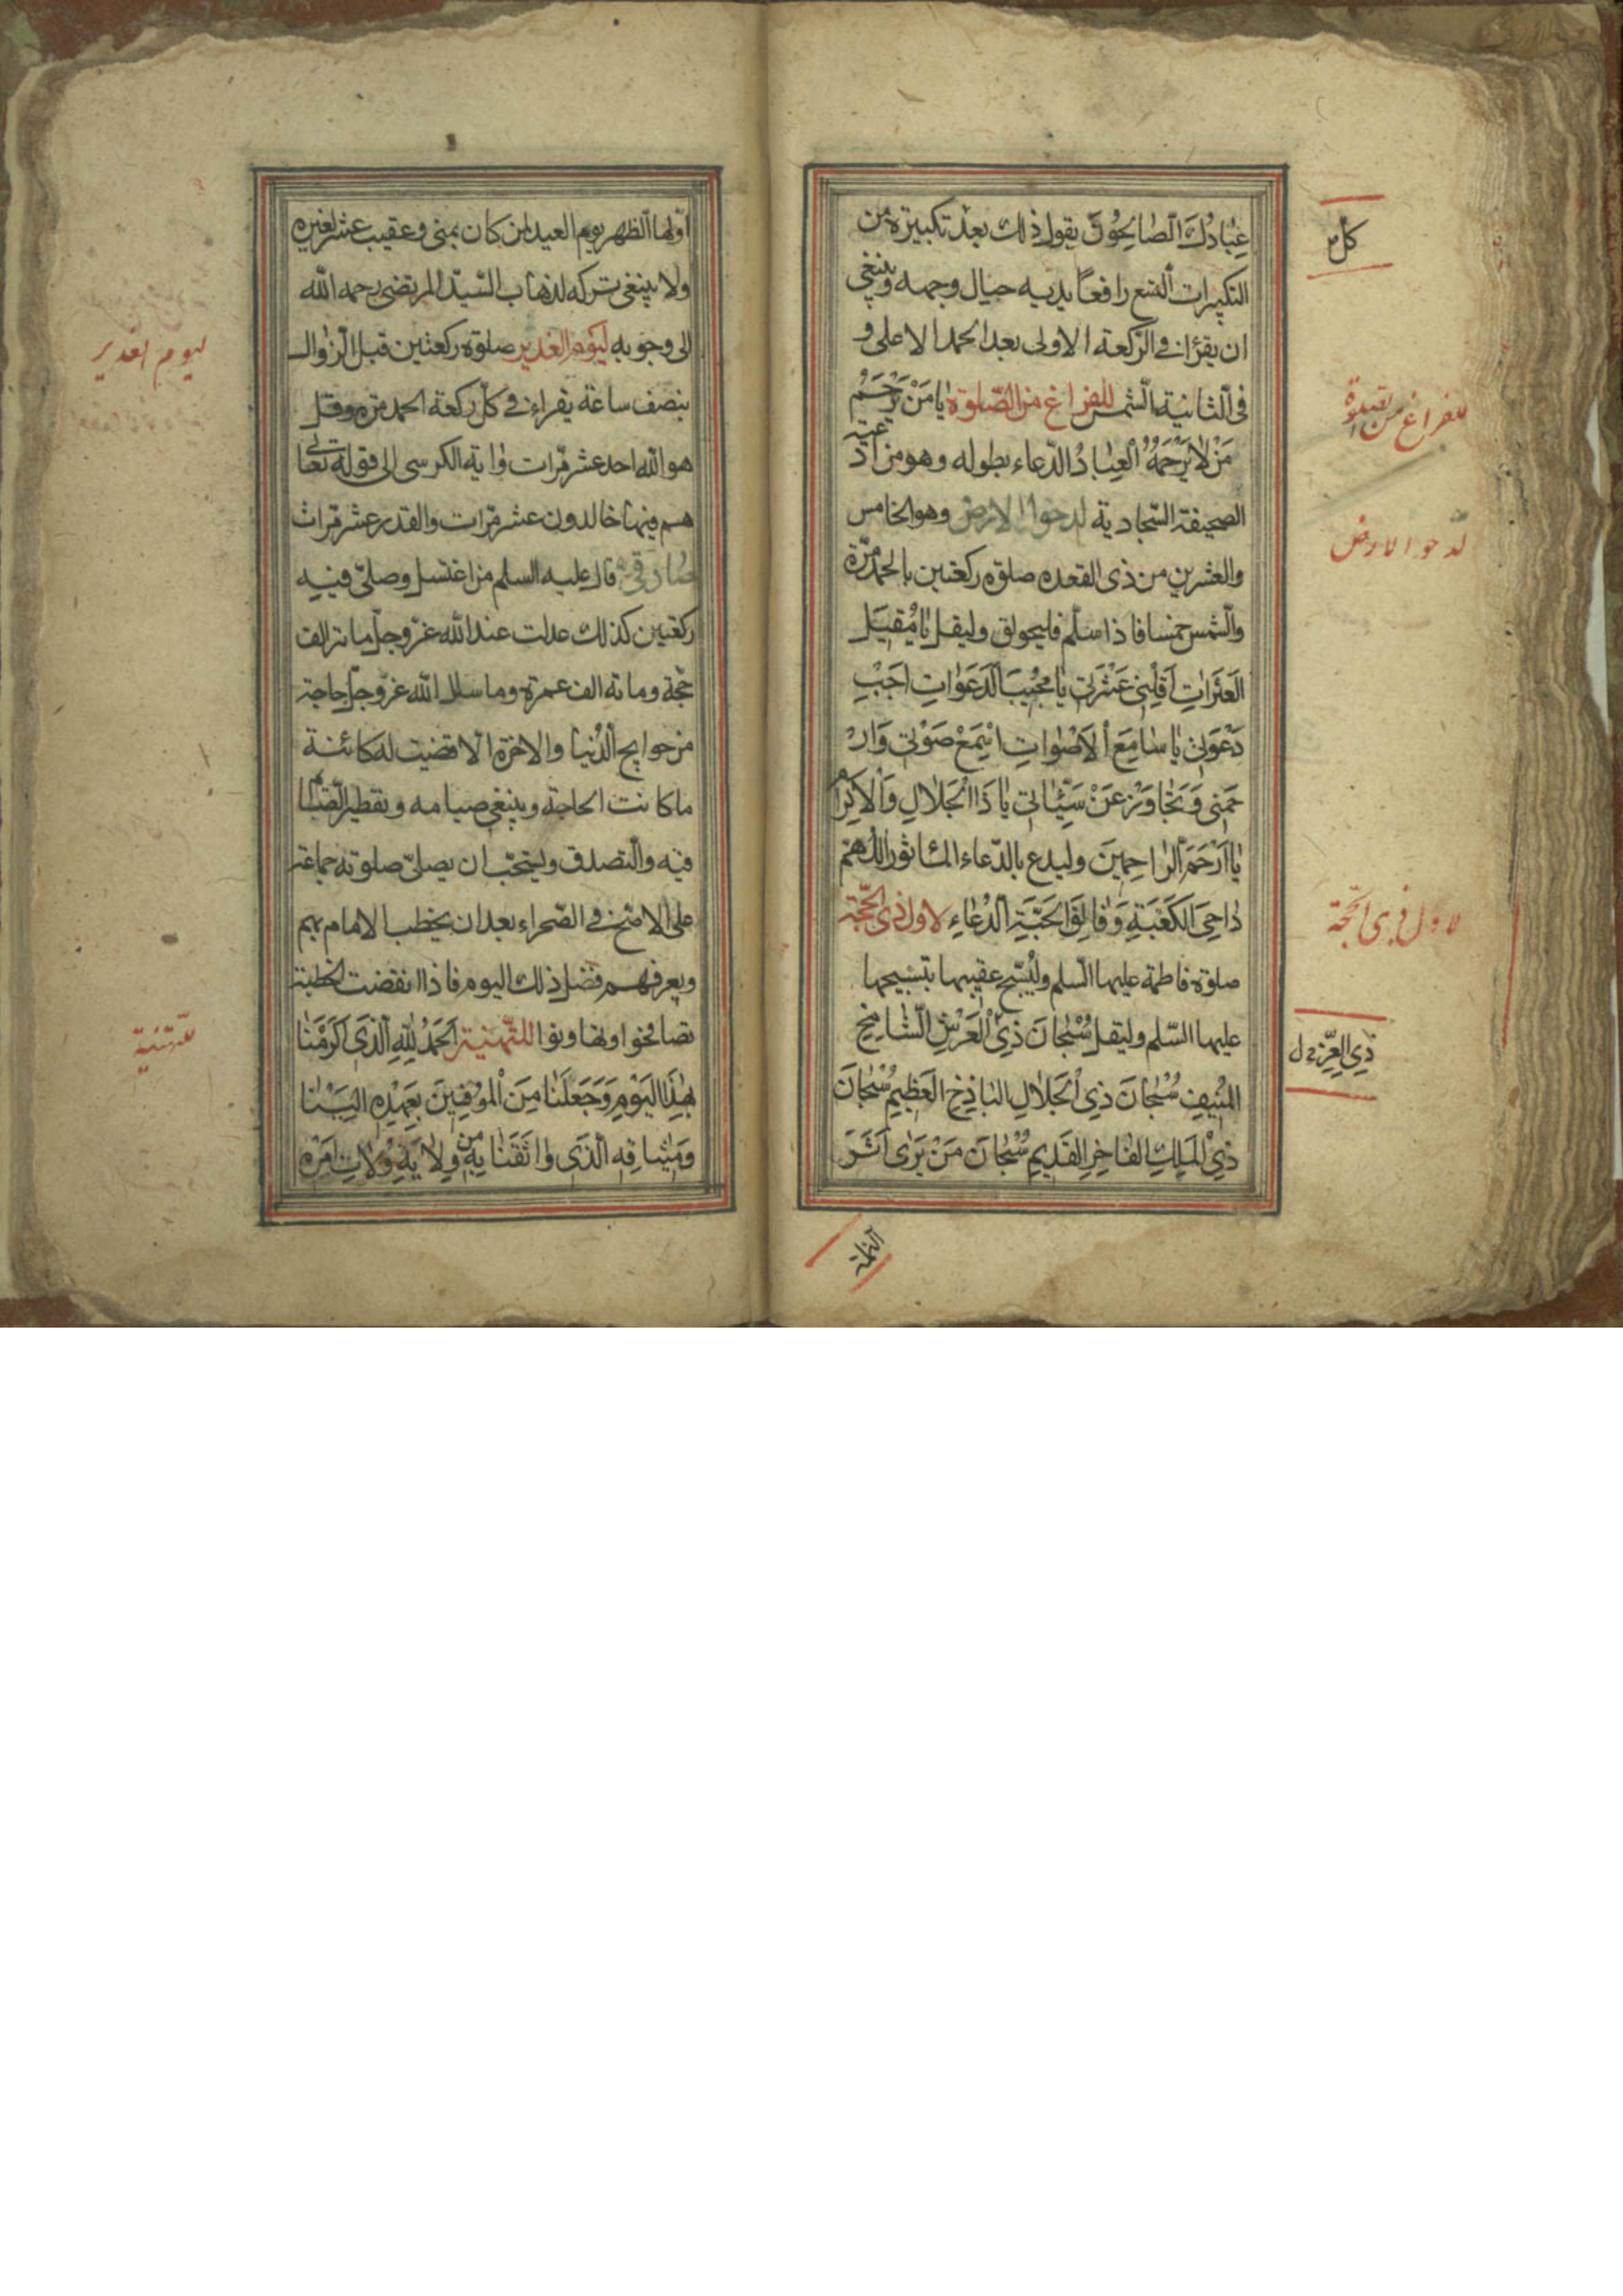 عِبٰادُكَ الصّٰالِحُونَ يقول ذلك بعد تكبيرة من
كل
التكبيرات التسع رافعًا يديه حيال وجهه وينبغي
ان يقرأ في الركعة الاولى بعد الحمد الاعلى و
فى الثانية الشمس للفراغ من الصّلوة يٰا مَنْ يَرْحَمُ
للفراغ من الصلوة
مَنْ لاٰ يَرْحَمُهُ الْعِبٰادُ الدّعاء بطوله وهو من ادعية
الصحيفة السّجادية لدحو الارض وهو الخامس
لدحو الارض
والعشرين من ذى القعده صلوة ركعتين بالحمد مرّة
والشمس خمسا فاذا سلّم فليحولق وليقل يٰا مُقيلَ
الْعَثَرٰاتِ اَقِلْنِي عَثْرَتِي يٰا مُجيبَ الدَّعَوٰاتِ اَجِبْ
دَعْوَتِي يٰا سٰامِعَ الْاَصْوٰاتِ اِسْمَعْ صَوْتِي وَارْ
حَمْنِي وَتَجٰاوَزْ عَنْ سَيِّئٰاتِي يٰا ذَا الْجَلاٰلِ وَالْاِكْرٰامِ
يٰا اَرْحَمَ الرّٰاحِمِينَ وليدع بالدّعاء المأثور اللّهم
دٰاحِيَ الْكَعْبَةِ وَفٰالِقَ الْحَبَّةِ الدُّعٰاءِ لاول ذى الحجّة
لاول ذى الحجّة
صلوة فاطمة عليها السّلم وليُسبّح عقيبها بتسبيحها
عليها السّلم وليقل سُبْحٰانَ ذِي الْعَرْشِ الشّٰامِخِ
ذِي الْعِزِّ
الْمُنِيفِ سُبْحٰانَ ذِي الْجَلاٰلِ الْبٰاذِخِ الْعَظِيمِ سُبْحٰانَ
ذِي الْمُلْكِ الْفٰاخِرِ الْقَدِيمِ سُبْحٰانَ مَنْ يَرٰى اَثَرَ
النملة
اوّلها الظهر يوم العيد لمن كان بمنى وعقيب عشر لغيره
ولا ينبغى تركه لذهاب السّيّد المرتضى رحمه الله
الى وجوبه ليوم الغدير صلوة ركعتين قبل الزوال
ليوم الغدير
بنصف ساعة يقراء في كلّ ركعة الحمد مرّه وقل
هو الله احد عشر مرّات واية الكرسى الى قوله تعالى
هم فيها خالدون عشر مرّات والقدر عشر مرّات
صادقي قال عليه السلم من اغتسل وصلّى فيه
ركعتين كذلك عدلت عند الله عزّ وجلّ مائة الف
حجّة ومائة الف عمرة وما سال الله عزّ وجلّ حاجة
من حوايج الدّنيا والاخرة الا قضيت له كائنة
ما كانت الحاجة وينبغى صيامه وتفطير الصّيام
فيه والتصدق ويستحبّ ان يصلّى صلوته جماعة
على الاصحّ في الصّحراء بعد ان يخطب الامام بهم
ويعرفهم فضل ذلك اليوم فاذا انقضت الخطبة
تصافحوا وتهانوا للتّهنية اَلْحَمْدُ لِلّٰهِ الَّذِي اَكْرَمَنٰا
للتهنية
بِهٰذَا الْيَوْمِ وَجَعَلَنٰا مِنَ الْمُوفِينَ بِعَهْدِهِ اِلَيْنٰا
وَمِيثٰاقِهِ الَّذِي وٰاثَقَنٰا بِهِ مِنْ وِلاٰيَةِ وُلاٰةِ اَمْرِهِ